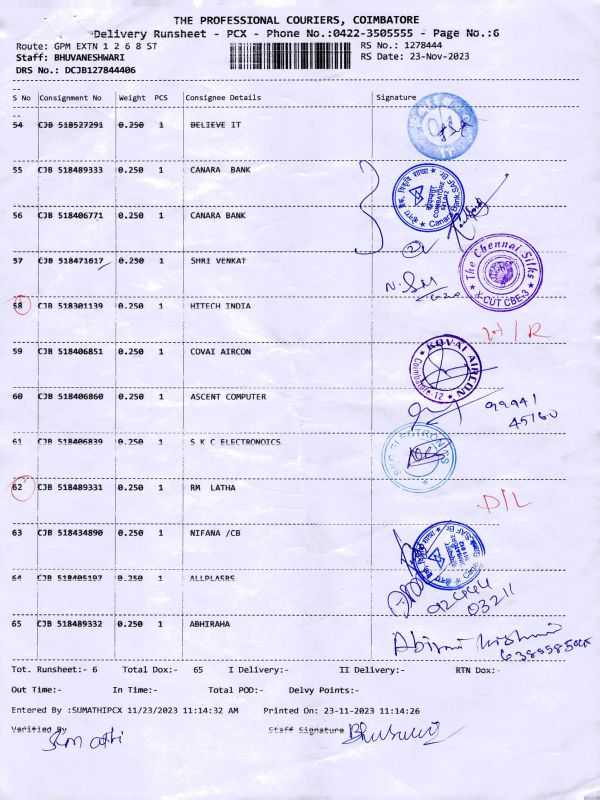 THE PROFESSIONAL COURIERS, COIMBATORE
Delivery Runsheet - PCX - Phone No.:0422-3505555 - Page No.:6
Route: GPM EXTN 1 2 6 8 ST RS No.: 1278444
Staff: BHUVANESHWARI RS Date: 23-Nov-2023
DRS No.: DCJB127844406
S No Consignment No Weight PCS Consignee Details Signature
54 CJB 518527291 0.250 1 BELIEVE IT
55 CJB 518489333 0.250 1 CANARA BANK
Canara Bank SAF Br
56 CJB 518406771 0.250 1 CANARA BANK
57 CJB 518471617 0.250 1 SHRI VENKAT
The Chennai Silks
X-CUT CBE-3
58 CJB 518301139 0.250 1 HITECH INDIA
59 CJB 518406851 0.250 1 COVAI AIRCON
KOVAI AIRCON
Coimbatore-12
60 CJB 518406860 0.250 1 ASCENT COMPUTER
99941
45760
61 CJB 518406839 0.250 1 S K C ELECTRONOICS
62 CJB 518489331 0.250 1 RM LATHA
D/L
63 CJB 518434890 0.250 1 NIFANA /CB
64 CJB 518405197 0.250 1 ALLPLASRS
03211
65 CJB 518489332 0.250 1 ABHIRAHA
Tot. Runsheet:- 6 Total Dox:- 65 I Delivery:- II Delivery:- RTN Dox:-
Out Time:- In Time:- Total POD:- Delvy Points:-
Entered By :SUMATHIPCX 11/23/2023 11:14:32 AM Printed On: 23-11-2023 11:14:26
Verified By Staff Signature